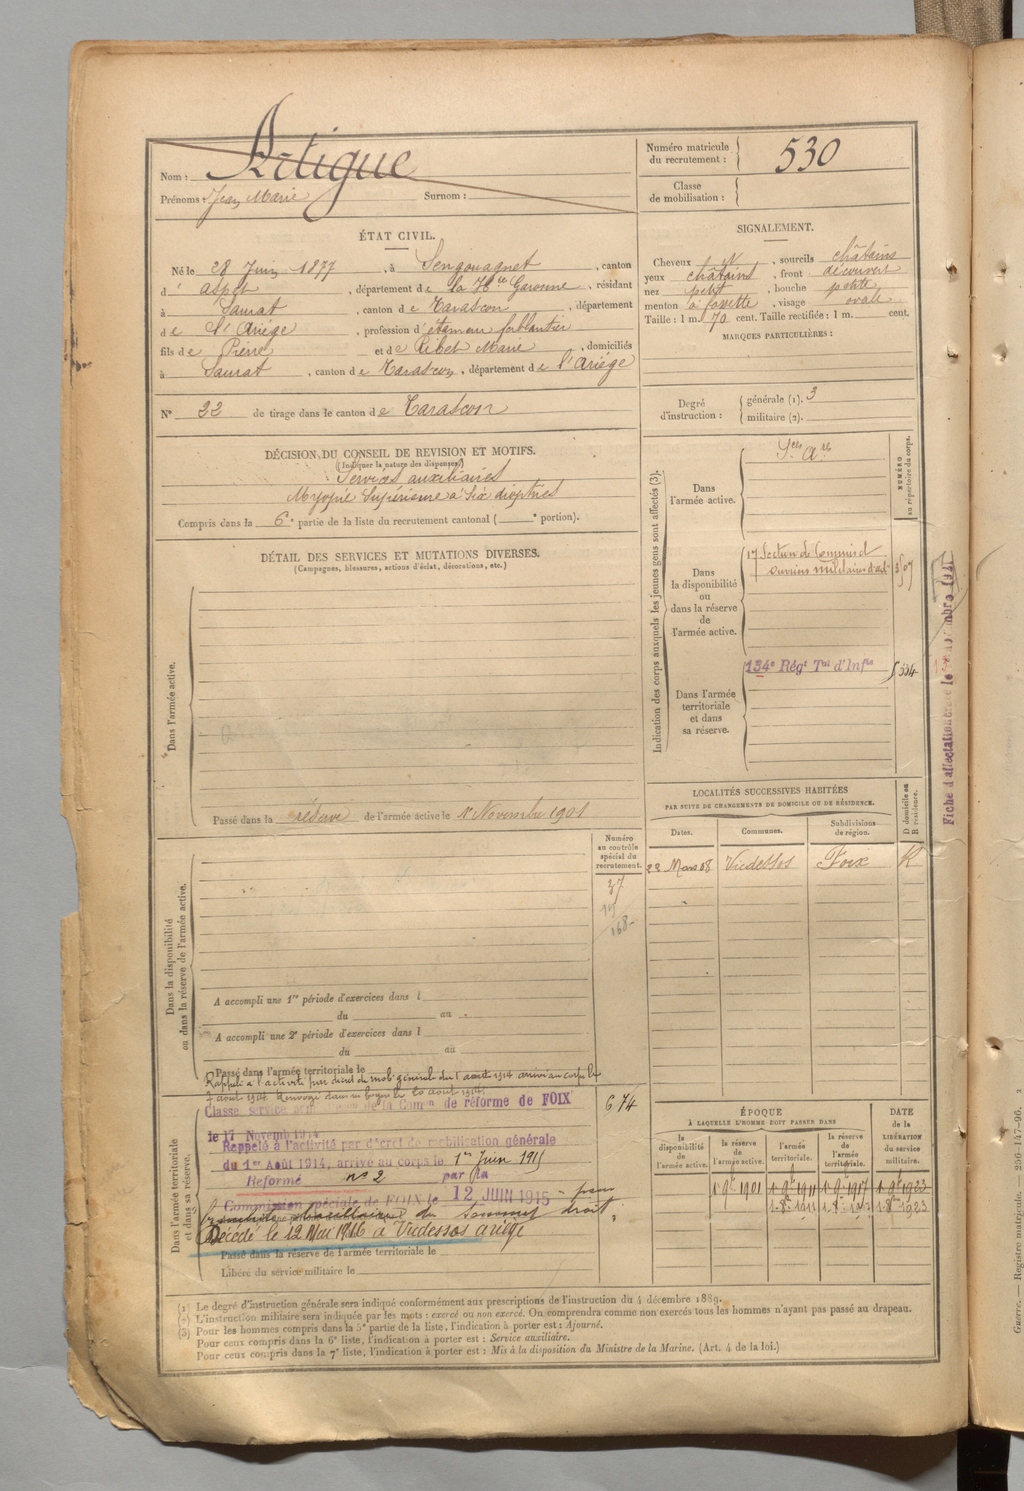 Nom : Artigue
Prénoms : Jean Marie Surnom :
Numéro matricule du recrutement : 530
Classe de mobilisation :
ÉTAT CIVIL.
Né le 28 Juin 1877, à Sengouagnet, canton
d' Aspet, département de la Hte Garonne, résidant
à Saurat, canton de Tarascon, département
de l'Ariège, profession d'étameur ferblantier
fils de Pierre et de Ribet Marie, domiciliés
à Saurat, canton de Tarascon, département de l'Ariège
N° 22 de tirage dans le canton de Tarascon
SIGNALEMENT.
Cheveux N, sourcils châtains
yeux châtains, front découvert
nez petit, bouche petite
menton à fossette, visage ovale
Taille : 1 m. 70 cent. Taille rectifiée : 1 m. cent.
MARQUES PARTICULIÈRES :
Degré d'instruction : générale (1). 3
militaire (2).
DÉCISION DU CONSEIL DE REVISION ET MOTIFS.
(Indiquer la nature des dispenses)
Services auxiliaires
Myopie Supérieure à Six dioptries
Compris dans la 6e partie de la liste du recrutement cantonal ( e portion).
DÉTAIL DES SERVICES ET MUTATIONS DIVERSES.
(Campagnes, blessures, actions d'éclat, décorations, etc.)
Dans l'armée active.
Passé dans la réserve de l'armée active le 1er Novembre 1901
Indication des corps auxquels les jeunes gens sont affectés (3).
NUMÉRO au répertoire du corps.
Dans l'armée active.
Sces Ares
Dans la disponibilité ou dans la réserve de l'armée active.
17e Section de Commis et
ouvriers militaires d'ad
Dans l'armée territoriale et dans sa réserve.
134e Régt Tal d'Infie
334
Fiche d'affectation
LOCALITÉS SUCCESSIVES HABITÉES
PAR SUITE DE CHANGEMENTS DE DOMICILE OU DE RÉSIDENCE.
D domicile ou R résidence.
Dates. Communes. Subdivisions de région.
22 Mars 08 Vicdessos Foix R
Dans la disponibilité ou dans la réserve de l'armée active.
Numéro au contrôle spécial du recrutement.
37
168
A accompli une 1re période d'exercices dans l
du au
A accompli une 2e période d'exercices dans l
du au
Passé dans l'armée territoriale le
Rappelé à l'activité par décret de mobon générale du 1er août 1914 arrivé au corps le
7 août 1914. Renvoyé dans ses foyers le 20 août 1914
Dans l'armée territoriale et dans sa réserve.
674
Classé service de la Comon de réforme de FOIX
le 17 Novemb 1914
Rappelé à l'activité par décret de mobilisation générale
du 1er Août 1914, arrivé au corps le 1er Juin 1915
Reformé n° 2 par la
Commission spéciale de FOIX le 12 JUIN 1915 pour
du sommet droit.
Décédé le 12 Mai 1916 à Vicdessos Ariège
Passé dans la réserve de l'armée territoriale le
Libéré du service militaire le
ÉPOQUE
À LAQUELLE L'HOMME DOIT PASSER DANS
DATE DE LA LIBÉRATION du service militaire.
la disponibilité de l'armée active. la réserve de l'armée active. l'armée territoriale. la réserve de l'armée territoriale.
1 9e 1901 1 9e 1911 1 9e 1917 1 9e 1923
(1) Le degré d'instruction générale sera indiqué conformément aux prescriptions de l'instruction du 4 décembre 1889.
(2) L'instruction militaire sera indiquée par les mots : exercé ou non exercé. On comprendra comme non exercés tous les hommes n'ayant pas passé au drapeau.
(3) Pour les hommes compris dans la 5e partie de la liste, l'indication à porter est : Ajourné.
Pour ceux compris dans la 6e liste, l'indication à porter est : Service auxiliaire.
Pour ceux compris dans la 7e liste, l'indication à porter est : Mis à la disposition du Ministre de la Marine. (Art. 4 de la loi.)
Guerre. — Registre matricule. — 256-147-96. 3